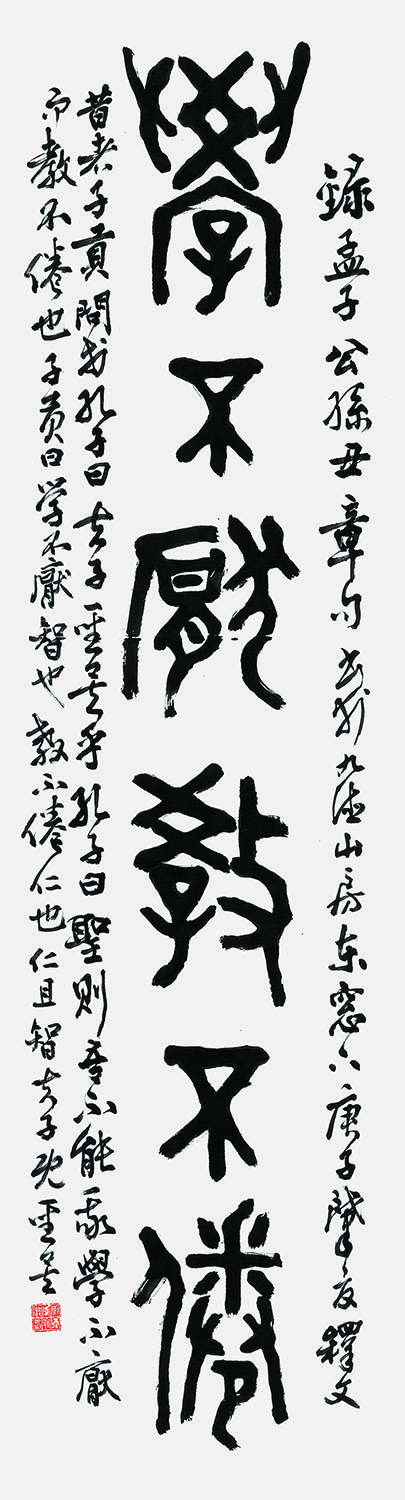 錄孟子公孫丑章句书於九山房东窓下庚子肇夏釋文
學不厭教不倦
昔者子貢問於孔子曰夫子聖矣乎孔子曰聖則吾不能我學不厭
而教不倦也子贡曰学不厭智也教不倦仁也仁且智夫子既聖矣